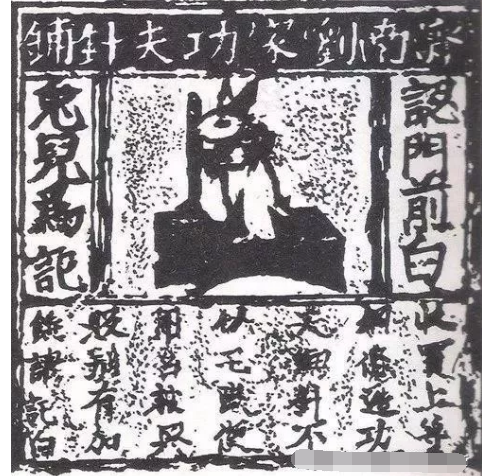 濟南劉家功夫針鋪
認門前白
兔兒為記
收買上等
鋼條造功
夫細針不
宅使
用若被興
販別有加
饒請記白